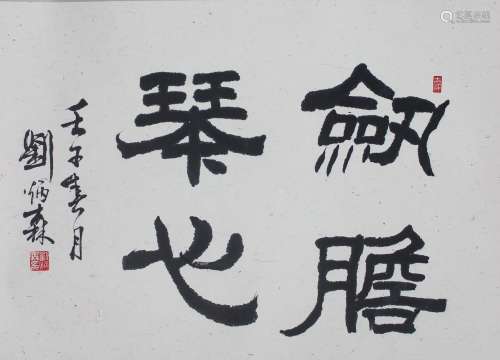 劒膽
琴心
壬午春月
劉炳森